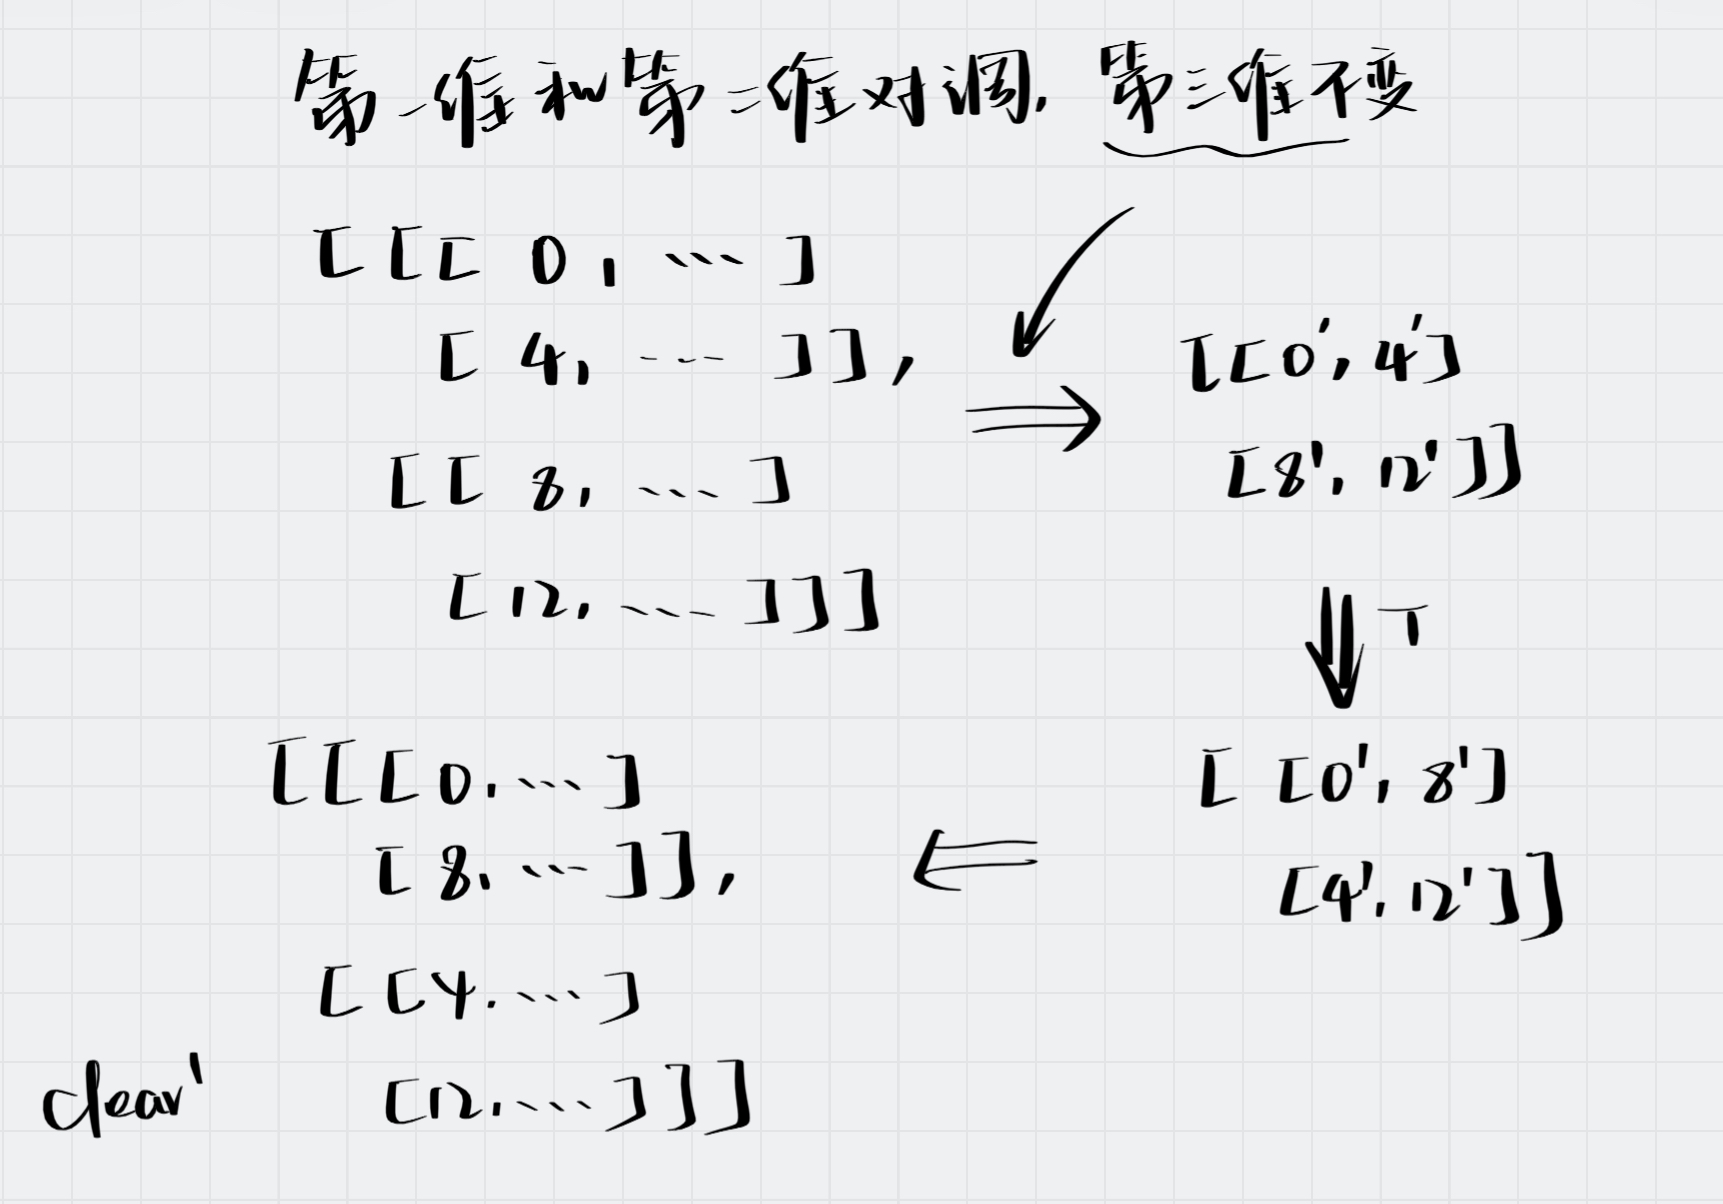 第一维和第二维对调, 第三维不变
[[[ 0, ... ]
[ 4, ... ]],
[[ 8, ... ]
[12, ... ]]]
[[0', 4']
[8', 12']]
T
[ [0', 8']
[4', 12']]
[[[0, ... ]
[8, ... ]],
[[4, ... ]
[12, ... ]]]
clear'